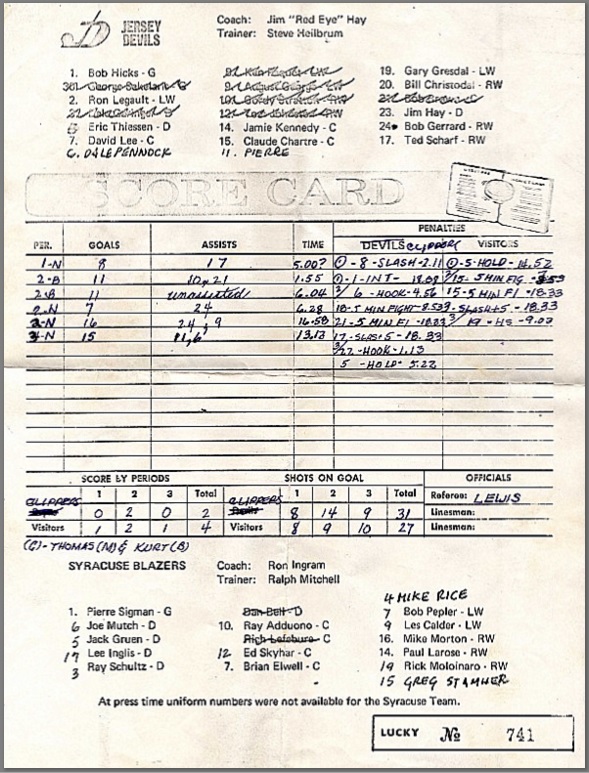 JERSEY DEVILS
Coach: Jim "Red Eye" Hay
Trainer: Steve Heilbrum
1. Bob Hicks - G
2. Ron Legault - LW
5 Eric Thiessen - D
7. David Lee - C
6. DALE PENNOCK
14. Jamie Kennedy - C
15. Claude Chartre - C
11. PIERRE
19. Gary Gresdal - LW
20. Bill Christodal - RW
23. Jim Hay - D
24. Bob Gerrard - RW
17. Ted Scharf - RW
SCORE CARD
PENALTIES
PER. GOALS ASSISTS TIME DEVILS CLIPPERS VISITORS
1-N 8 17 5.00? 1-8-SLASH-2.11 1-5-HOLD-14.52
2-B 11 10,21 1.55 1-1-INT- 3/15-5 MIN FIG
2-B 11 unassisted 6.04 3/ 6 -HOOK-4.56 15-5 MIN FI -18.33
2-N 7 24 6.28 -SLASH+5 - 18.33
16 24, 9 16.58 21-5 MIN FI 3/ 19 -HS -9.02
15 11,6 13.13 17-SLAS+5 - 18.33
-HOOK-1.13
5 -HOLD- 5.22
SCORE BY PERIODS SHOTS ON GOAL OFFICIALS
1 2 3 Total 1 2 3 Total Referee: LEWIS
CLIPPERS 0 2 0 2 CLIPPERS 8 14 9 31 Linesman:
Visitors 1 2 1 4 Visitors 8 9 10 27 Linesman:
(G)-THOMAS(N) & KURT(B)
SYRACUSE BLAZERS
Coach: Ron Ingram
Trainer: Ralph Mitchell
1. Pierre Sigman - G
6 Joe Mutch - D
5 Jack Gruen - D
19 Lee Inglis - D
3 Ray Schultz - D
Dan Bell - D
10. Ray Adduono - C
Rich Lefebure - C
12 Ed Skyhar - C
7. Brian Elwell - C
4 MIKE RICE
7 Bob Pepler - LW
9 Les Calder - LW
16. Mike Morton - RW
14. Paul Larose - RW
19 Rick Moloinaro - RW
15 GREG
At press time uniform numbers were not available for the Syracuse Team.
LUCKY No 741